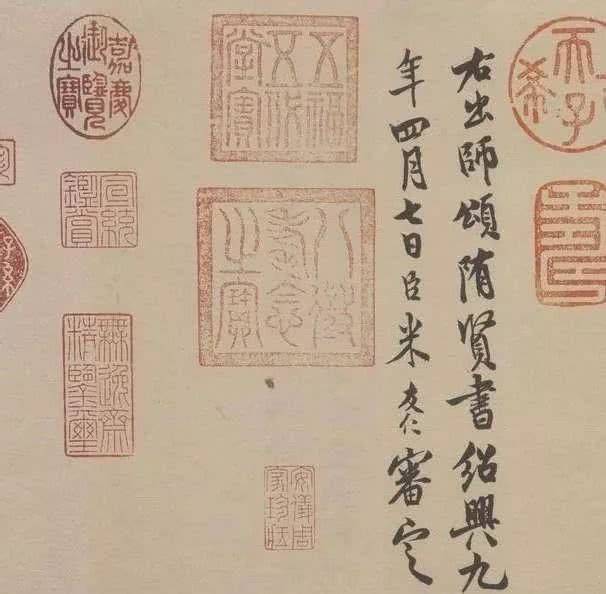 天子
希
壽
右出師頌隋賢書紹興九
年四月七日臣米友仁審定
五福
五代
堂寶
八徵
耄念
之寶
安儀周
家珍藏
嘉慶
御覽
之寶
宣統
鑑賞
無逸齋
精鑒璽